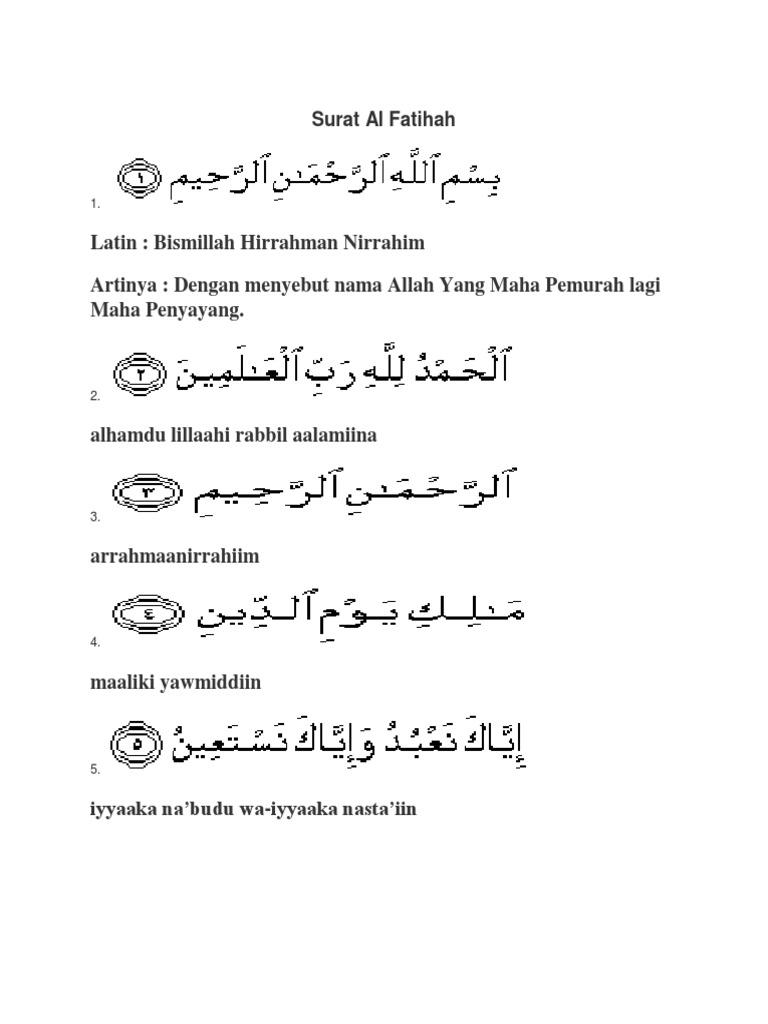 Surat Al Fatihah
1. بِسْمِ ٱللَّهِ ٱلرَّحْمَـٰنِ ٱلرَّحِيمِ ١
Latin : Bismillah Hirrahman Nirrahim
Artinya : Dengan menyebut nama Allah Yang Maha Pemurah lagi
Maha Penyayang.
2. ٱلْحَمْدُ لِلَّهِ رَبِّ ٱلْعَـٰلَمِينَ ٢
alhamdu lillaahi rabbil aalamiina
3. ٱلرَّحْمَـٰنِ ٱلرَّحِيمِ ٣
arrahmaanirrahiim
4. مَـٰلِكِ يَوْمِ ٱلدِّينِ ٤
maaliki yawmiddiin
5. إِيَّاكَ نَعْبُدُ وَإِيَّاكَ نَسْتَعِينُ ٥
iyyaaka na’budu wa-iyyaaka nasta’iin